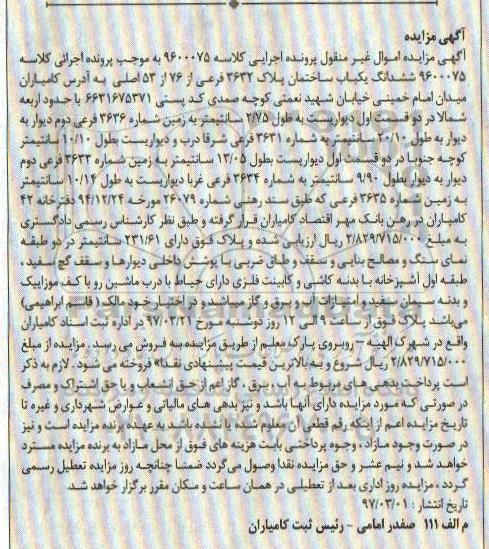 آگهی مزایده
آگهی مزایده اموال غیر منقول پرونده اجرایی کلاسه ۹۶۰۰۰۷۵ به موجب پرونده اجرائی کلاسه
۹۶۰۰۰۷۵ ششدانگ یکباب ساختمان پلاک ۳۶۳۲ فرعی از ۷۶ از ۵۳ اصلی به آدرس کامیاران
میدان امام خمینی خیابان شهید نعمتی کوچه صمدی کد پستی ۶۶۳۱۶۷۵۳۷۱ با حدود اربعه
شمالا در دو قسمت اول دیواریست به طول ۲/۷۵ سانتیمتر به زمین شماره ۳۶۳۶ فرعی دوم دیوار به
دیوار به طول ۲۰/۱۰ سانتیمتر به شماره ۳۶۳۱ فرعی شرقا درب و دیواریست بطول ۱۰/۱۰ سانتیمتر
کوچه جنوبا در دو قسمت اول دیواریست بطول ۱۳/۰۵ سانتیمتر به زمین شماره ۳۶۳۳ فرعی دوم
دیوار به دیوار بطول ۹/۹۰ سانتیمتر به شماره ۳۶۳۴ فرعی غربا دیواریست به طول ۱۰/۱۴ سانتیمتر
به زمین شماره ۳۶۳۵ فرعی که طبق سند رهنی شماره ۲۶۰۷۹ مورخه ۹۴/۱۲/۲۴ دفترخانه ۴۲
کامیاران در رهن بانک مهر اقتصاد کامیاران قرار گرفته و طبق نظر کارشناس رسمی دادگستری
به مبلغ ۲/۸۲۹/۷۱۵/۰۰۰ ریال ارزیابی شده و پلاک فوق دارای ۲۳۱/۶۱ سانتیمتر در دو طبقه
نمای سنگ و مصالح بنایی و سقف و طاق ضربی با پوشش داخلی دیوارها و سقف گچ سفید،
طبقه اول آشپزخانه با بدنه کاشی و کابینت فلزی دارای حیاط با درب ماشین رو با کف موزاییک
و بدنه سیمان سفید و امتیازات آب و برق و گاز میباشد و در اختیار خود مالک (قاسم ابراهیمی)
می‌باشد پلاک فوق از ساعت ۹ الی ۱۲ روز دوشنبه مورخ ۹۷/۰۳/۲۱ در اداره ثبت اسناد کامیاران
واقع در شهرک الهیه – روبروی پارک معلم از طریق مزایده به فروش می رسد. مزایده از مبلغ
۲/۸۲۹/۷۱۵/۰۰۰ ریال شروع و به بالاترین قیمت پیشنهادی نقدا» فروخته می شود. لازم به ذکر
است پرداخت بدهی های مربوط به آب، برق، گاز اعم از حق انشعاب و یا حق اشتراک و مصرف
در صورتی که مورد مزایده دارای آنها باشد و نیز بدهی های مالیاتی و عوارض شهرداری و غیره تا
تاریخ مزایده اعم از اینکه رقم قطعی آن معلوم شده یا نشده باشد به عهده برنده مزایده است و نیز
در صورت وجود مازاد، وجوه پرداختی بابت هزینه های فوق از محل مازاد به برنده مزایده مسترد
خواهد شد و نیم عشر و حق مزایده نقدا وصول می‌گردد ضمنا چنانچه روز مزایده تعطیل رسمی
گردد، مزایده روز اداری بعد از تعطیلی در همان ساعت و مکان مقرر برگزار خواهد شد.
تاریخ انتشار: ۹۷/۰۳/۰۱
م الف ۱۱۱ صفدر امامی – رئیس ثبت کامیاران